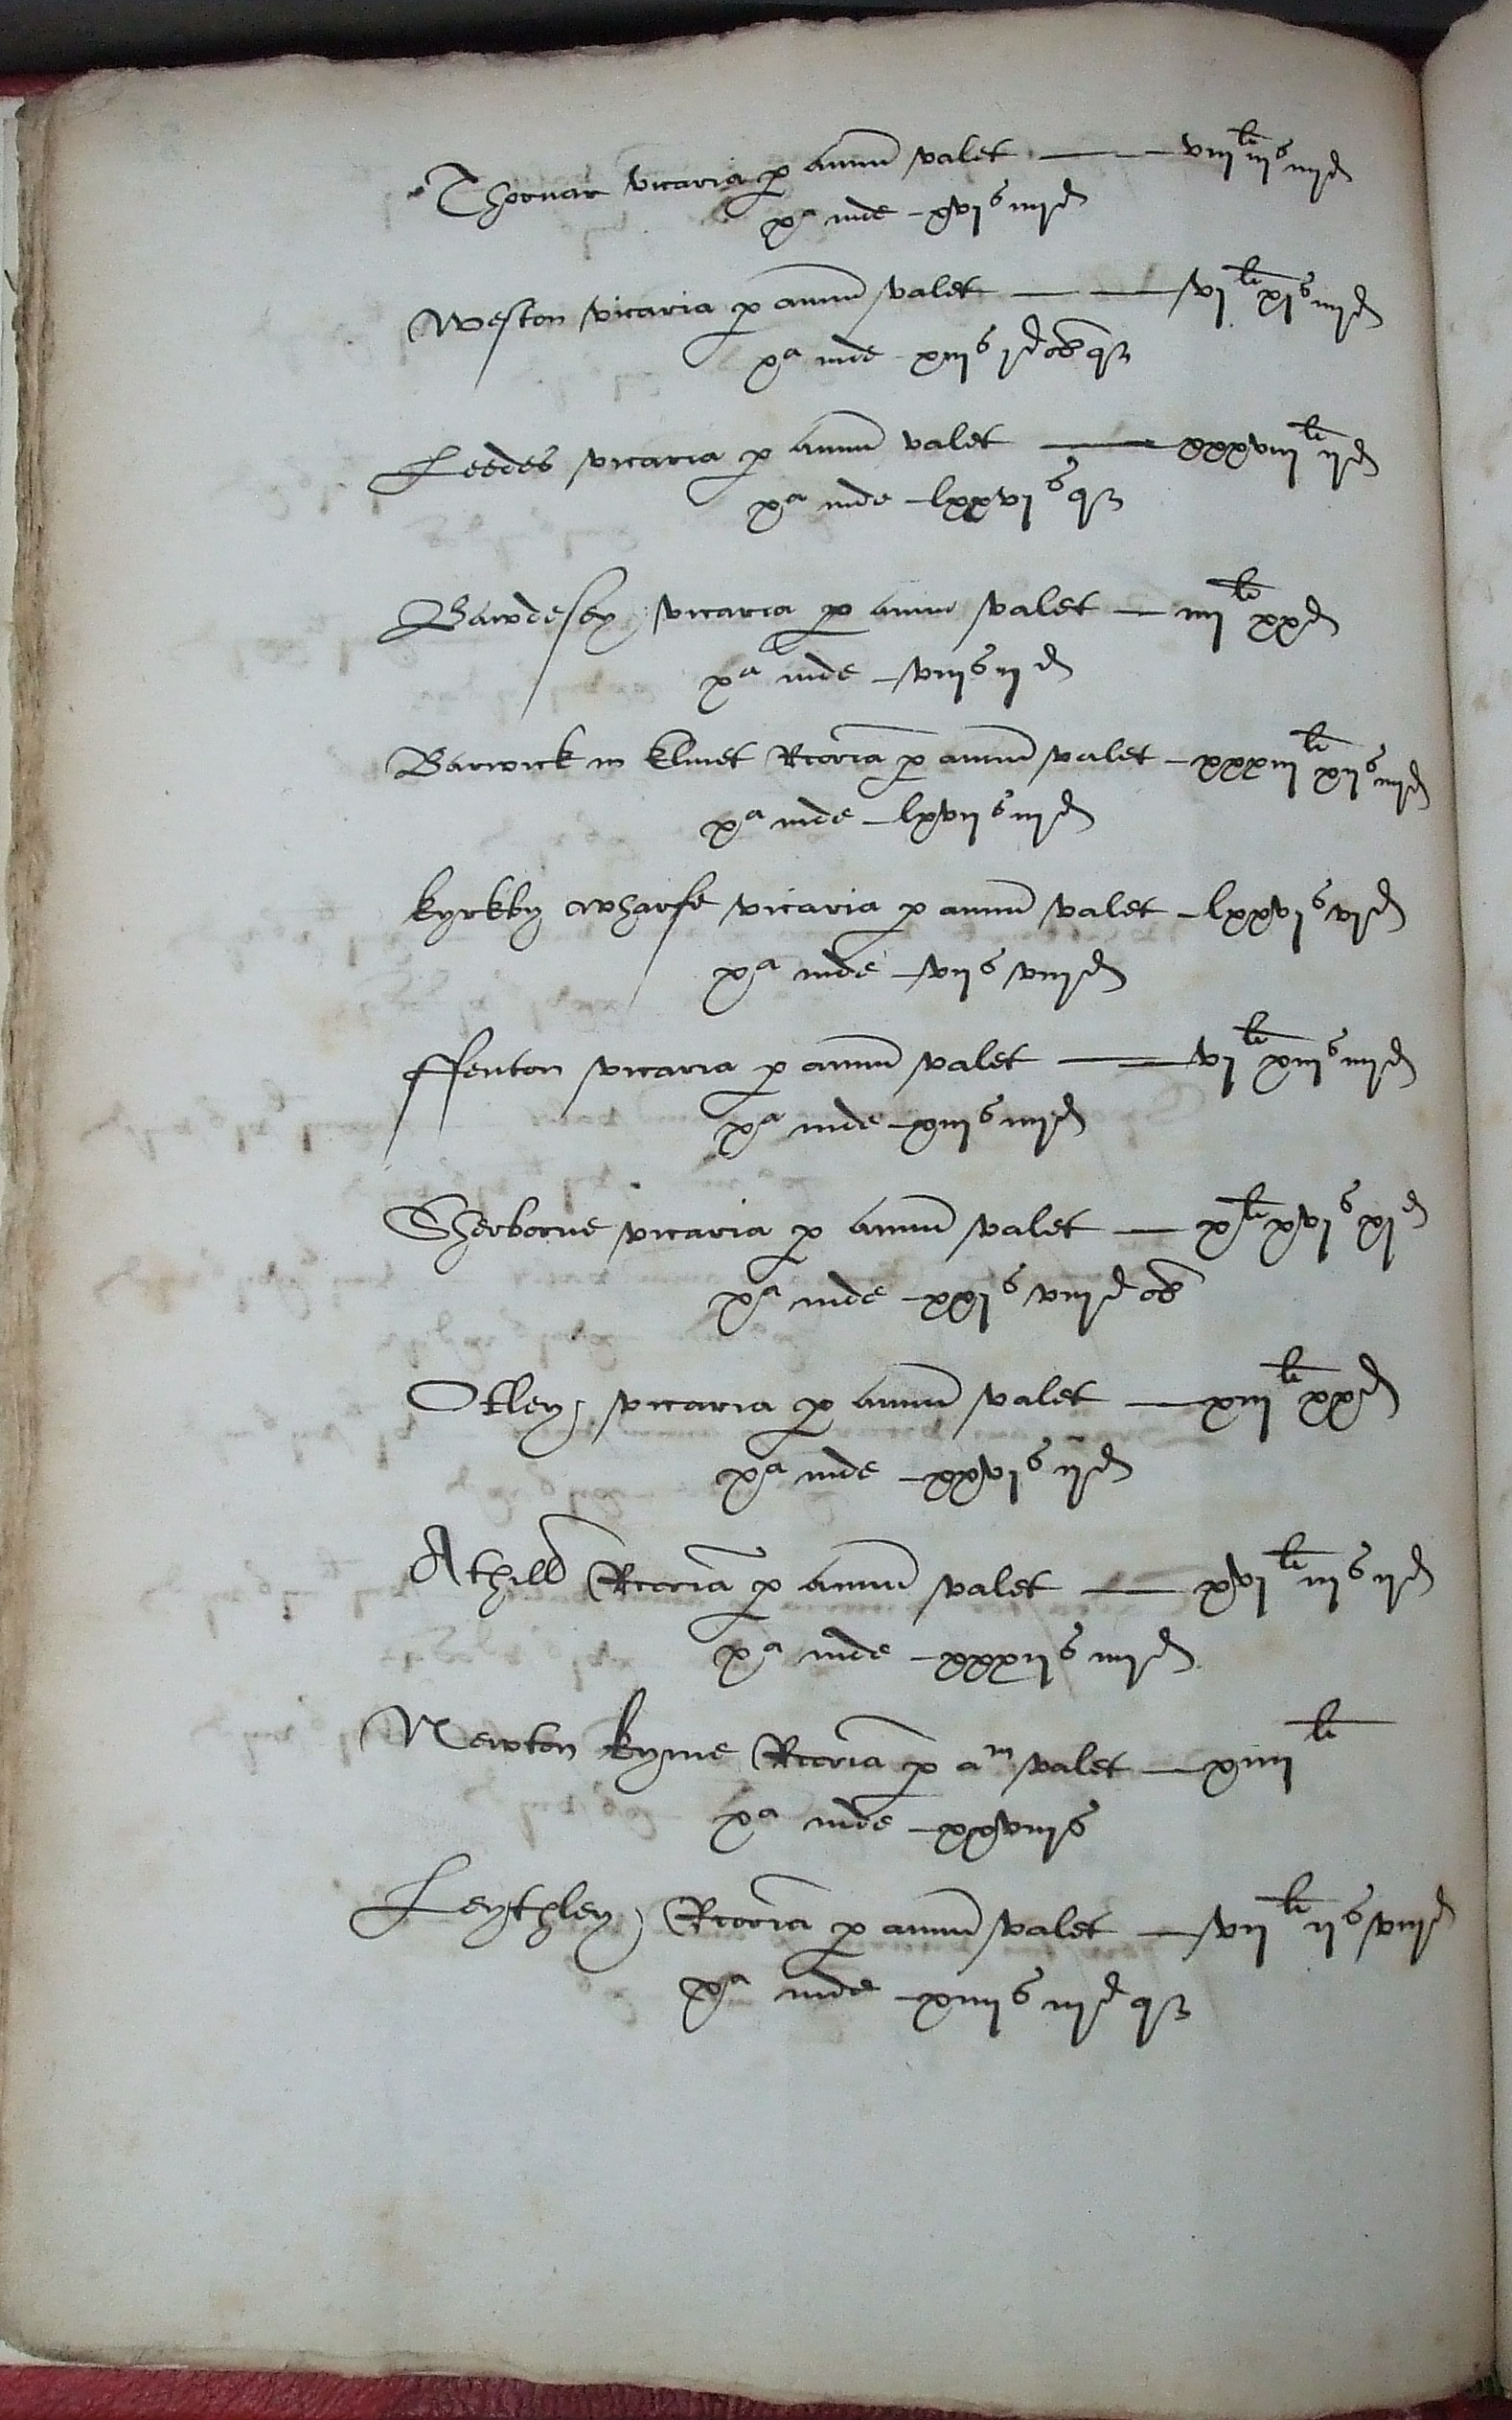 Thornar vicaria p annu valet — viij li iij s iiij d
xa inde — xvj s iiij d
Weston vicaria p annu valet — vj li xj s iiij d
xa inde xiij s j d ob qz
Leedes vicaria p annu valet — xxxviij li ij d
xa inde — lxxvj s qz
Bawdesey vicaria p annu valet — iiij li xx d
xa inde — viij s ij d
Barwick in Elmet Rcoria p annu valet — xxxiij li xij s iiij d
xa inde — lxvij s iij d
kyrkby wharfe vicaria p annu valet — lxxvj s vj d
xa inde — vij s viij d
ffenton vicaria p annu valet — vj li xiij s iiij d
xa inde — xiij s iiij d
Sherborne vicaria p annu valet — x li xvj s xj d
xa inde — xxj s viij d ob
Otley vicaria p annu valet — xiij li xx d
xa inde — xxvj s ij d
Athill Rcoria p annu valet — xvj li iij s ij d
xa inde — xxxij s iiij d
Newton kyme Rcoria p am valet — xiiij li
xa inde — xxviij s
Leythley Rcoria p annu valet — vij li ij s viij d
xa inde — xiiij s iij d qz